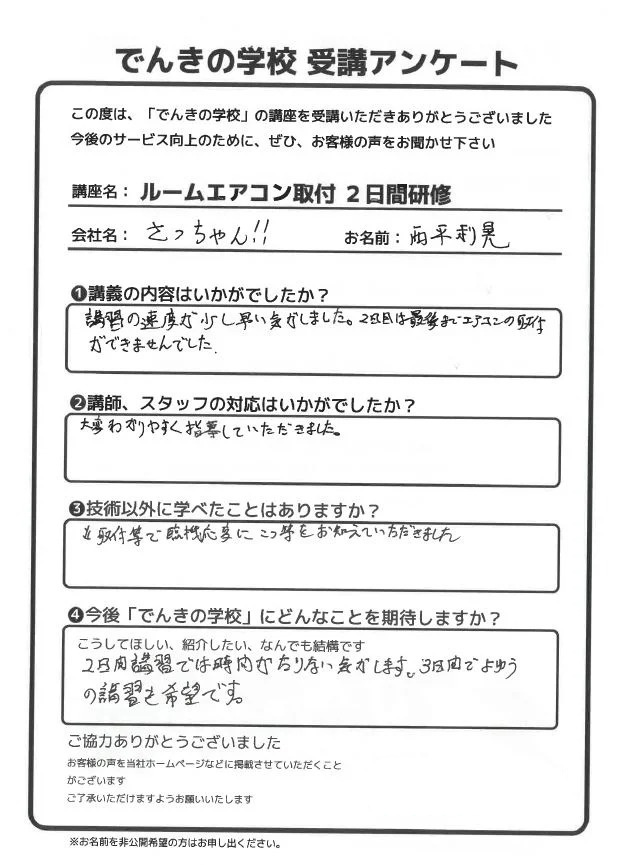 でんきの学校 受講アンケート
この度は、「でんきの学校」の講座を受講いただきありがとうございました
今後のサービス向上のために、ぜひ、お客様の声をお聞かせ下さい
講座名： ルームエアコン取付 2日間研修
会社名： さっちゃん!! お名前： 西平利晃
❶講義の内容はいかがでしたか？
講習の速度が少し早い気がしました。2日目は最後までエアコンの取付
ができませんでした。
❷講師、スタッフの対応はいかがでしたか？
大変わかりやすく指導していただきました。
❸技術以外に学べたことはありますか？
取付等で臨機応変にコツ等をお知えていただきました
❹今後「でんきの学校」にどんなことを期待しますか？
こうしてほしい、紹介したい、なんでも結構です
2日間講習では時間がたりない気がします。3日間でよゆう
の講習を希望です。
ご協力ありがとうございました
お客様の声を当社ホームページなどに掲載させていただくこと
がございます
ご了承いただけますようお願いいたします
※お名前を非公開希望の方はお申し出ください。